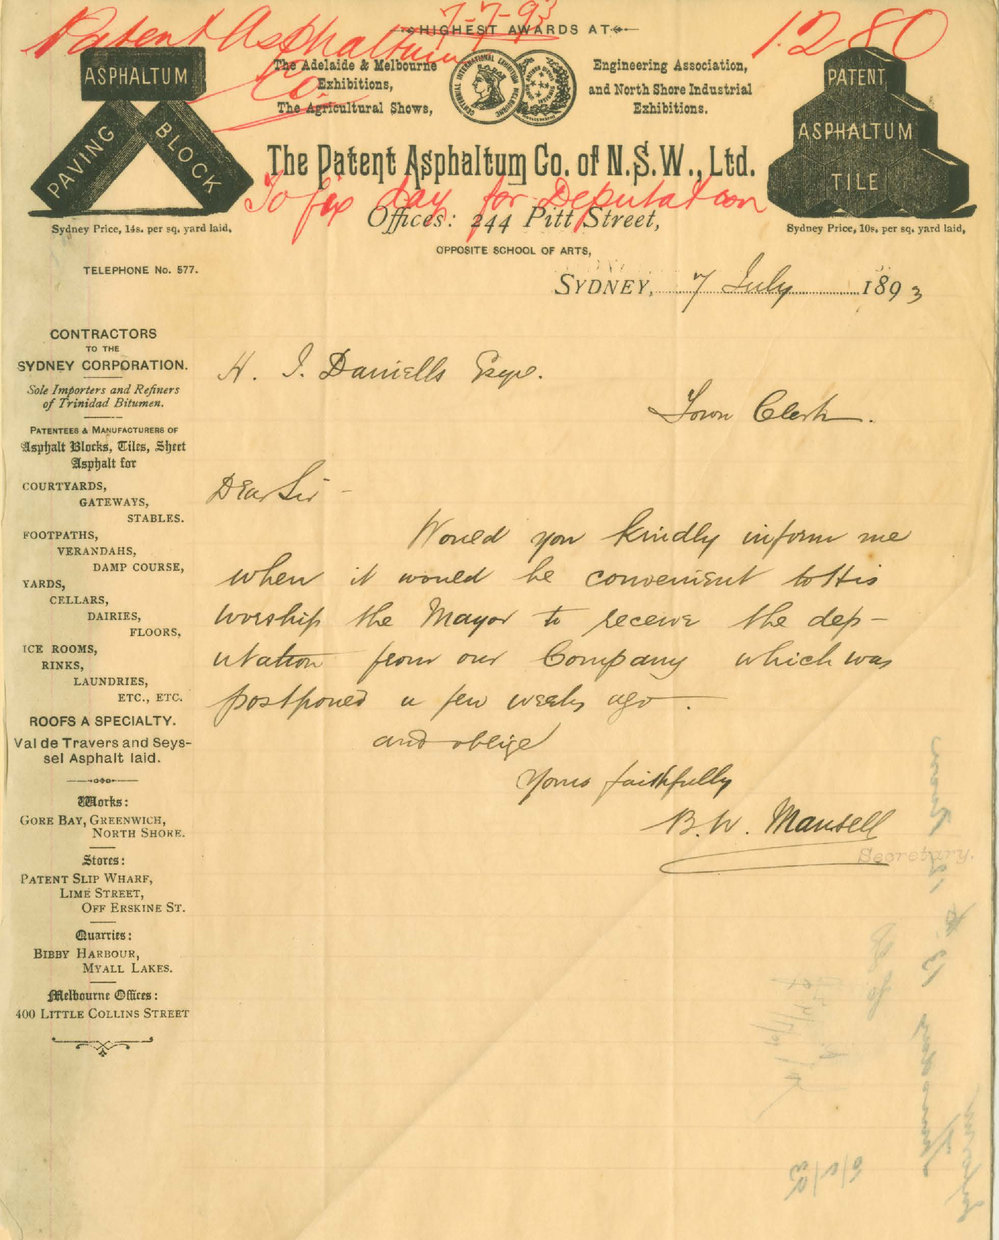 7-7-93
Patent Asphaltum
Co.
1280
To fix day for Deputation
HIGHEST AWARDS AT
The Adelaide & Melbourne
Exhibitions,
The Agricultural Shows,
CENTENNIAL INTERNATIONAL EXHIBITION MELBOURNE
Engineering Association,
and North Shore Industrial
Exhibitions.
ASPHALTUM
PAVING
BLOCK
Sydney Price, 14s. per sq. yard laid,
PATENT
ASPHALTUM
TILE
Sydney Price, 10s. per sq. yard laid,
The Patent Asphaltum Co. of N.S.W., Ltd.
Offices: 244 Pitt Street,
OPPOSITE SCHOOL OF ARTS,
TELEPHONE No. 577.
SYDNEY, 7 July 1893
CONTRACTORS
TO THE
SYDNEY CORPORATION.
Sole Importers and Refiners
of Trinidad Bitumen.
PATENTEES & MANUFACTURERS OF
Asphalt Blocks, Tiles, Sheet
Asphalt for
COURTYARDS,
GATEWAYS,
STABLES.
FOOTPATHS,
VERANDAHS,
DAMP COURSE,
YARDS,
CELLARS,
DAIRIES,
FLOORS,
ICE ROOMS,
RINKS,
LAUNDRIES,
ETC., ETC.
ROOFS A SPECIALTY.
Val de Travers and Seys-
sel Asphalt laid.
Works:
GORE BAY, GREENWICH,
NORTH SHORE.
Stores:
PATENT SLIP WHARF,
LIME STREET,
OFF ERSKINE ST.
Quarries:
BIBBY HARBOUR,
MYALL LAKES.
Melbourne Offices:
400 LITTLE COLLINS STREET
H. J. Daniells Esqre.
Town Clerk.
Dear Sir -
Would you kindly inform me
when it would be convenient to His
worship the Mayor to receive the dep-
utation from our Company which was
postponed a few weeks ago.
and oblige
Yours faithfully
B. W. Mansell
Secretary.